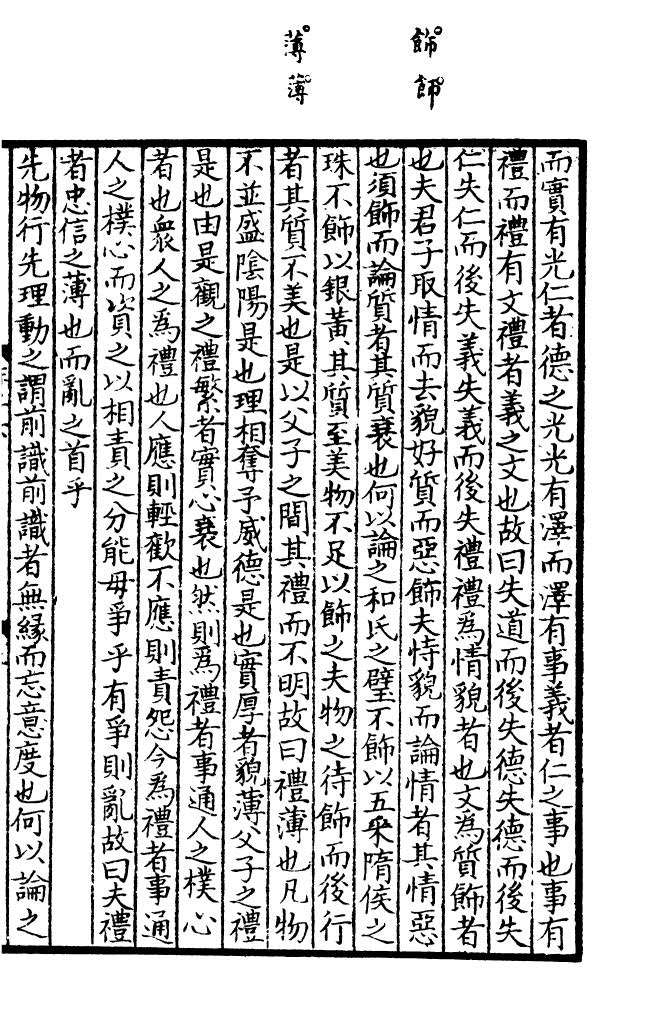 飾飾
薄薄
而實有光仁者德之光光有澤而澤有事義者仁之事也事有
禮而禮有文禮者義之文也故曰失道而後失德失德而後失
仁失仁而後失義失義而後失禮禮為情貌者也文為質飾者
也夫君子取情而去貌好質而惡飾夫恃貌而論情者其情惡
也須飾而論質者其質衰也何以論之和氏之璧不飾以五采隋侯之
珠不飾以銀黃其質至美物不足以飾之夫物之待飾而後行
者其質不美也是以父子之間其禮而不明故曰禮薄也凡物
不並盛陰陽是也理相奪予威德是也實厚者貌薄父子之禮
是也由是觀之禮繁者實心衰也然則為禮者事通人之樸心
者也衆人之為禮也人應則輕歡不應則責怨今為禮者事通
人之樸心而資之以相責之分能毋爭乎有爭則亂故曰夫禮
者忠信之薄也而亂之首乎
先物行先理動之謂前識前識者無緣而忘意度也何以論之